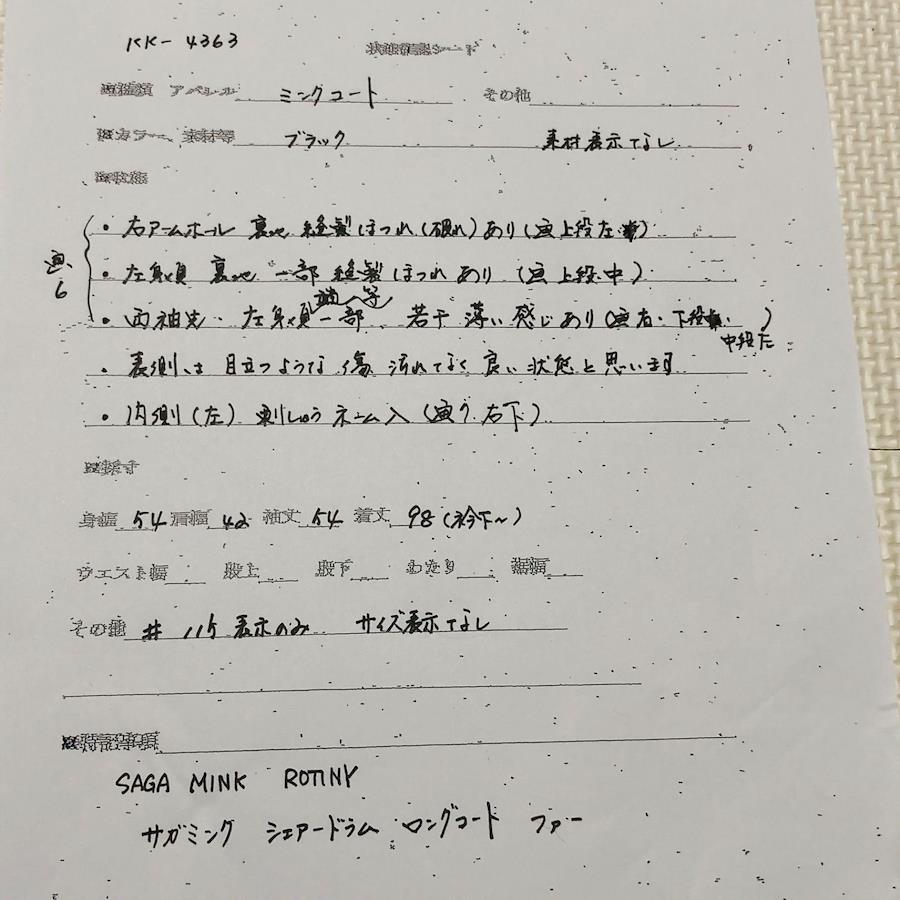 KK-4363
状態確認シート
アパレル ミンクコート その他
カラー、素材等 ブラック 素材表示なし
■状態
・右アームホール 裏地 縫製ほつれ(破れ)あり(画上段左)
画6 ・左身頃 裏地 一部 縫製ほつれ あり (画上段中)
・両袖先・左身頃一部 若干 薄い感じあり(画右・下段・中段左)
・表側は 目立つような傷 汚れてなく 良い状態と思います
・内側(左) 刺しゅうネーム入(画7 右下)
■採寸
身幅 54 肩幅 42 袖丈 54 着丈 98(衿下~)
ウエスト幅 股上 股下 わたり 裾幅
その他 # 115 表示のみ サイズ表示なし
■特記事項
SAGA MINK ROTINY
サガミンク シェアードラム ロングコート ファー